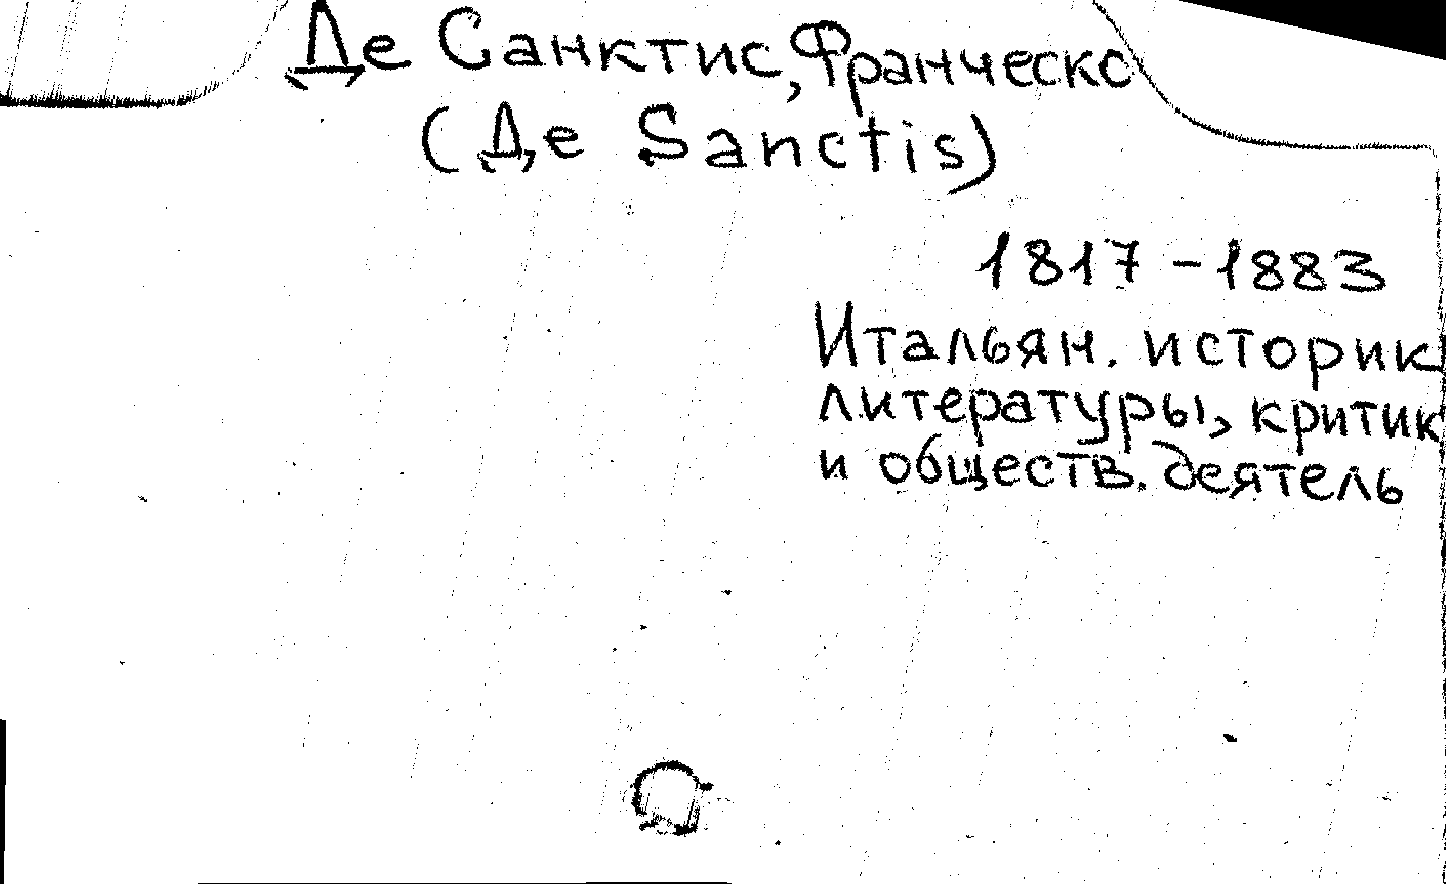 Де Санктис, Франческо
(Де Sanctis)
1817 - 1883
Итальян. историк
литературы, критик
и обществ. деятель